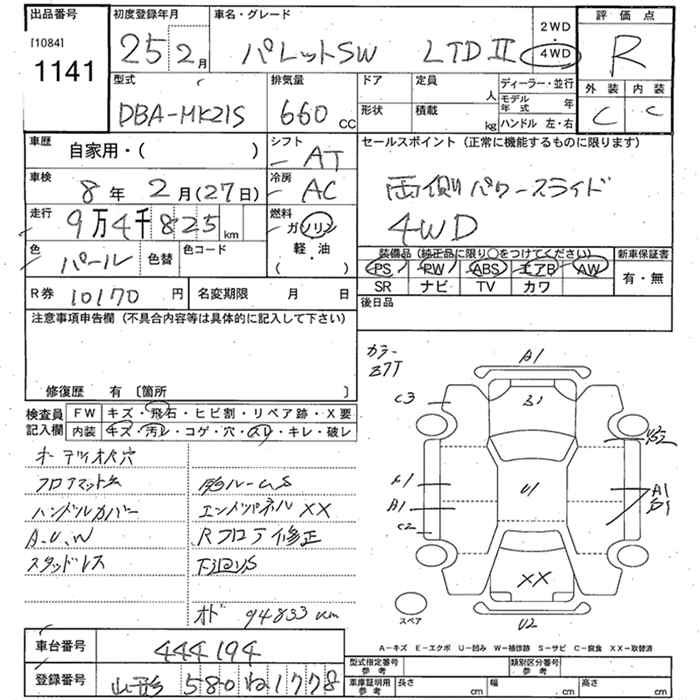 出品番号 初度登録年月 車名・グレード 2WD 評価点
[1084] 25 2月 パレットSW LTDⅡ ・ R
1141 4WD 外装 内装
型式 排気量 ドア 定員 ディーラー・並行 C C
DBA-MK21S 660 CC 人 モデル年式 年
形状 積載 kg ハンドル 左・右
車歴 自家用・( ) シフト AT セールスポイント (正常に機能するものに限ります)
車検 8年 2月(27日) 冷房 AC 両側パワースライド
走行 9万4千825km 燃料 ガソリン 4WD
色 パール 色替 色コード 軽・油 装備品 (純正品に限り○をつけてください) 新車保証書
( ) PS PW ABS エアB AW 有・無
R券 10170円 名変期限 月 日 SR ナビ TV カワ
注意事項申告欄 (不具合内容等は具体的に記入して下さい) 後日品
修復歴 有 〔箇所 〕
カラー
Z7T
A1
検査員 FW キズ・飛石・ヒビ割・リペア跡・X要 C3 S1
記入欄 内装 キズ・汚レ・コゲ・穴・スレ・キレ・破レ
オーディオパ穴
フロアマットケ 内ルームS U1 A1
ハンドルカバー エンジンパネルXX A1
A.U.W Rフロア修正 C2
スタッドレス 下廻りS XX
オド 94833km スペア U2
A-キズ E-エクボ U-凹み W-補修跡 S-サビ C-腐食 XX-取替済
車台番号 444194 型式指定番号 参考 類別区分番号 参考
登録番号 山形 580 ね 1778 車庫証明用 参考 長さ cm 幅 cm 高さ cm